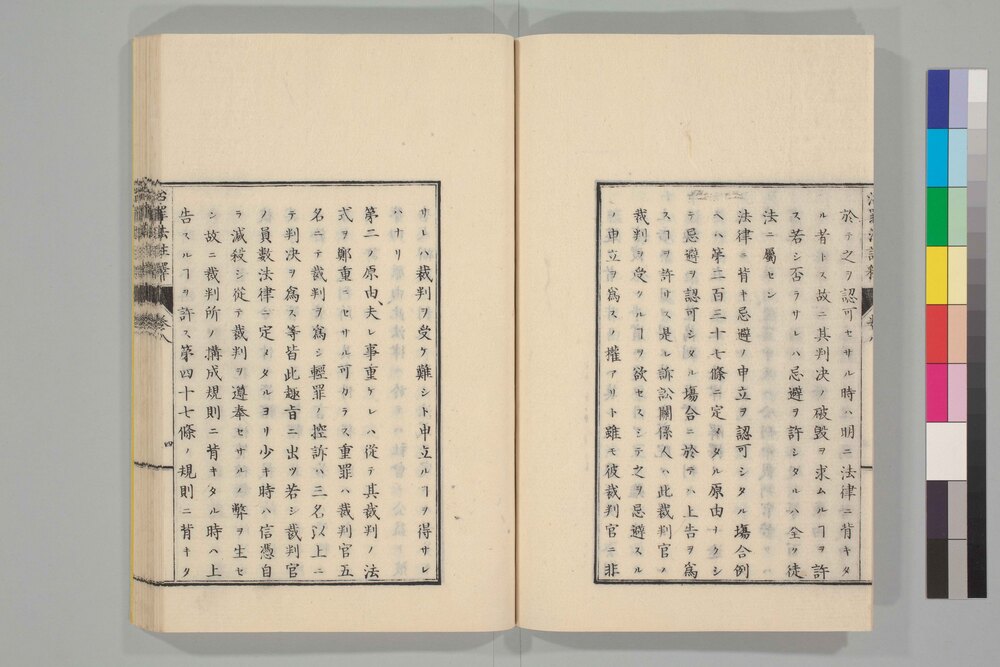 於テ之ヲ認可セサル時ハ明ニ法律ニ背キタ
ル者トス故ニ其判决ノ破毀ヲ求ムルヿヲ許
ス若シ否ラサレハ忌避ヲ許シタルハ全ク徒
法ニ屬セン
法律ニ背キ忌避ノ申立ヲ認可シタル塲合例
ヘハ第二百三十七條ニ定メタル原由ナクシ
テ忌避ヲ認可シタル塲合ニ於テハ上告ヲ爲
スヿヲ許サス是レ訴訟關係人ハ此裁判官ノ
裁判ヲ受クルヿヲ欲セスシテ之ヲ忌避スル
ノ申立ヲ爲スノ權アリト雖モ彼裁判官ニ非
サレハ裁判ヲ受ケ難シト申立ルヿヲ得サレ
ハナリ
第二ノ原由、夫レ事重ケレハ從テ其裁判ノ法
式ヲ鄭重ニセサル可カラス重罪ハ裁判官五
名ニテ裁判ヲ爲シ輕罪ノ控訴ハ三名以上ニ
テ判决ヲ爲ス等皆此趣旨ニ出ツ若シ裁判官
ノ員數法律ニ定メタルヨリ少キ時ハ信憑自
ラ減殺シ從テ裁判ヲ遵奉セサルノ弊ヲ生セ
ン故ニ裁判所ノ搆成規則ニ背キタル時ハ上
告スルヿヲ許ス第四十七條ノ規則ニ背キタ
治罪法註釋
卷八
四